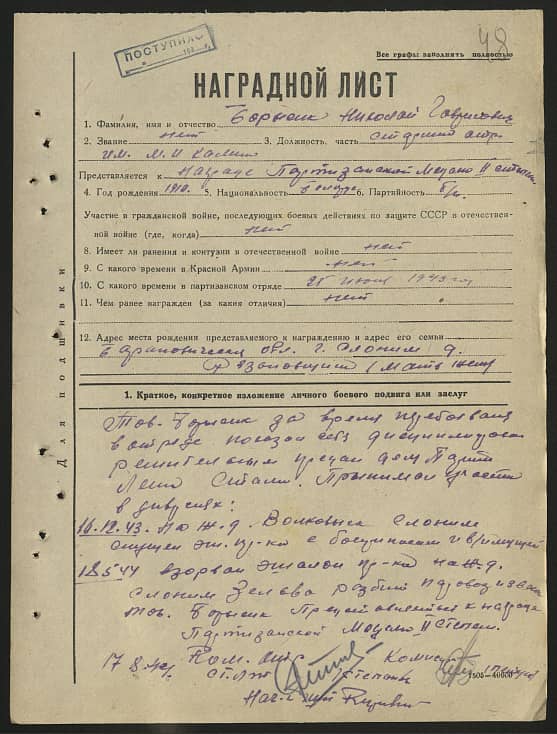 48
ПОСТУПИЛО
Все графы заполнять полностью
НАГРАДНОЙ ЛИСТ
1. Фамилия, имя и отчество Борысик Николай Гаврилович
2. Звание нет 3. Должность, часть
им. М. И Калин
Представляется к награде Партизанской Медали II степени
4. Год рождения 1910. 5. Национальность 6. Партийность б/п.
Участие в гражданской войне, последующих боевых действиях по защите СССР в отечествен-
ной войне (где, когда) нет
8. Имеет ли ранения и контузии в отечественной войне нет
9. С какого времени в Красной Армии нет
10. С какого времени в партизанском отряде 25 июня 1943 год
11. Чем ранее награжден (за какия отличия) нет
12. Адрес места рождения представляемого к награждению и адрес его семьи
Барановическая обл. г. Слоним д.
Для подшивки
1. Краткое, конкретное изложение личного боевого подвига или заслуг
Тов. Борысик за время пребывания
в отряде показал себя
решительным предан делу Партии
Принимал участие
в диверсиях:
16.12.43. На ж.д. Волковыск Слоним
спущен эш. пр-ка с боеприпасам
18 5 44 взорван эшалон пр-ка на ж.д
Слоним Зельва разбит паровоз
тов. Борысик Представляется к награде
Партизанской Медалью II Степени.
17 8 44 Ком. отр Комис
ст. л-т Степан
Нач.
1505—40000